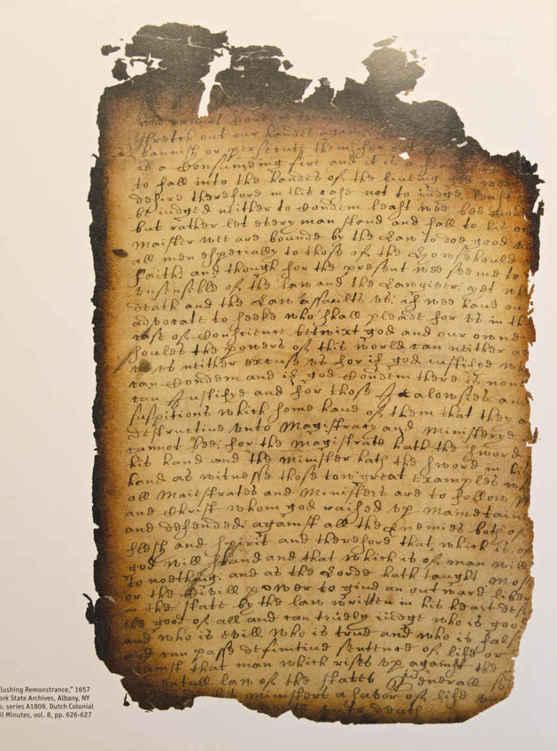 stretch out our handes agains
bannish or persecute them for
is a Consumeing fire and it is a
to fall into the handes of the liueing
desire therefore in this case not to iudge least
be iudged neither to Condem least wee bee
but rather let euery man stand and fall to his on
Maister wee are bounde by the Law to doe good
all men especially to those of the howsehould
faith: and though for the present wee seeme to
vnsensible of the law and the Lawgiuer: yet wh
death and the Law assault vs: if wee haue ou
aduocate to seeke who shall pleade for vs in th
case of Conscience betwixt god and our owne
soules the powers of this world can neither
vs neither excuse vs for if god iustifye wh
can Condem and if god Condem there is none
can Justifye and for those Jealowsies an
suspitions which some haue of them that they a
destructiue vnto Magistracy and Ministerye
cannot bee: for the magistrate hath the sword
his hand and the minister hath the sword in hi
hand as witnesse those tow great Examples wh
all Maiestrates and Ministers are to follow
and Christ whom god raised vp Maintain
and defended against all the Enemies both of
flesh and spirit and therefore that which is of
god will stand and that which is of man will
to noething: and as the Lorde hath taught Mos
or the Ciuill power to giue an outward liber
in the state by the law written in his heart des
the good of all and can truely iudge who is goo
and who is euill who is true and who is fals
and can pass definitiue sentence of life or
against that man which rises vp against the
law of the states Generall so
ministers a sauor of life
to death
lushing Remonstrance," 1657
ork State Archives, Albany, NY
s: series A1809, Dutch Colonial
il Minutes, vol. 8, pp. 626-627